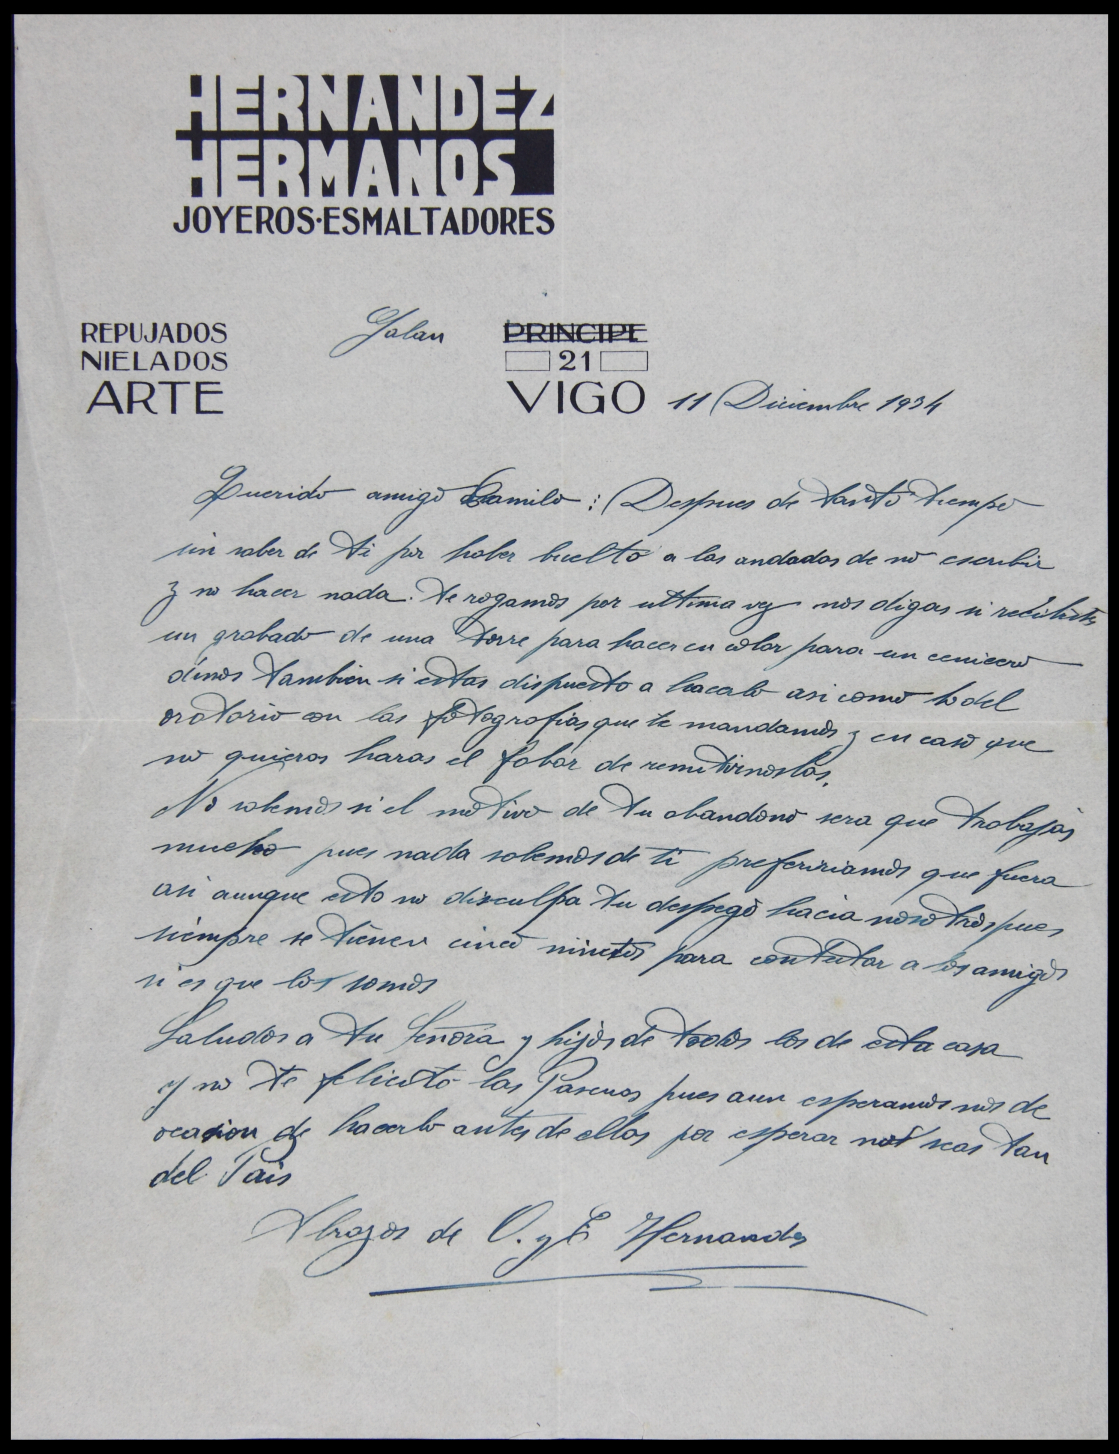 HERNANDEZ
HERMANOS
JOYEROS·ESMALTADORES
REPUJADOS
NIELADOS
ARTE
Galan
PRINCIPE
21
VIGO 11 Diciembre 1934
Querido amigo Camilo: Despues de tanto tiempo
sin saber de ti por haber buelto a las andadas de no escribir
y no hacer nada. te rogamos por ultima vez nos digas si recibistes
un grabado de una torre para hacer en color para un cenicero
dinos tambien si estas dispuesto a hacerlo asi como lo del
oratorio con las fotografias que te mandamos y en caso que
no quieras haras el fabor de remitirnoslas.
No sabemos si el motivo de tu abandono sera que trabajas
mucho pues nada sabemos de ti prefeririamos que fuera
asi aunque esto no disculpa tu despego hacia nosotros pues
siempre se tienen cinco minutos para contestar a los amigos
si es que los somos
Saludos a tu Señora y hijos de todos los de esta casa
y no te felicito las Pascuas pues aun esperamos nos de
ocasion de hacerlo antes de ellas por esperar not seas tan
del Pais
Abrazos de O. y E Hernandez